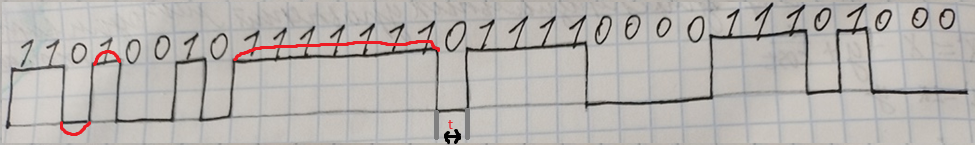 1 1 0 1 0 0 1 0 1 1 1 1 1 1 1 0 1 1 1 1 0 0 0 0 1 1 1 0 1 0 0 0
t